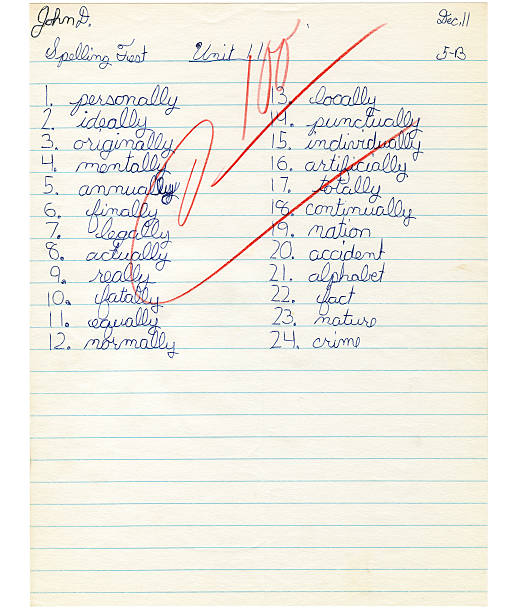 John D.
Dec. 11
Spelling Test Unit 11
5-B
100
1. personally
2. ideally
3. originally
4. mentally
5. annually
6. finally
7. legally
8. actually
9. really
10. fatally
11. equally
12. normally
13. locally
14. punctually
15. individually
16. artificially
17. totally
18. continually
19. nation
20. accident
21. alphabet
22. fact
23. nature
24. crime